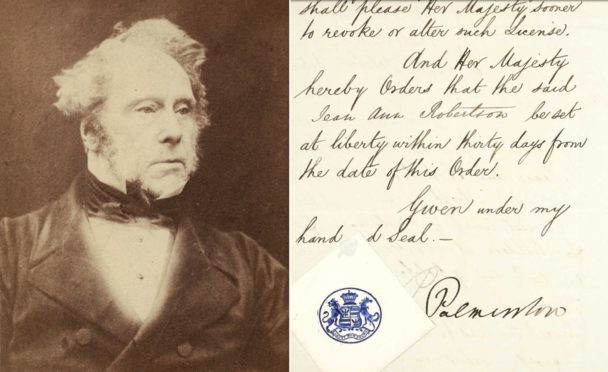 shall please Her Majesty sooner
to revoke or alter such License.
And Her Majesty
hereby Orders that the said
Jean Ann Robertson be set
at liberty within thirty days from
the date of this Order.
Given under my
hand d Seal.—
Palmerston